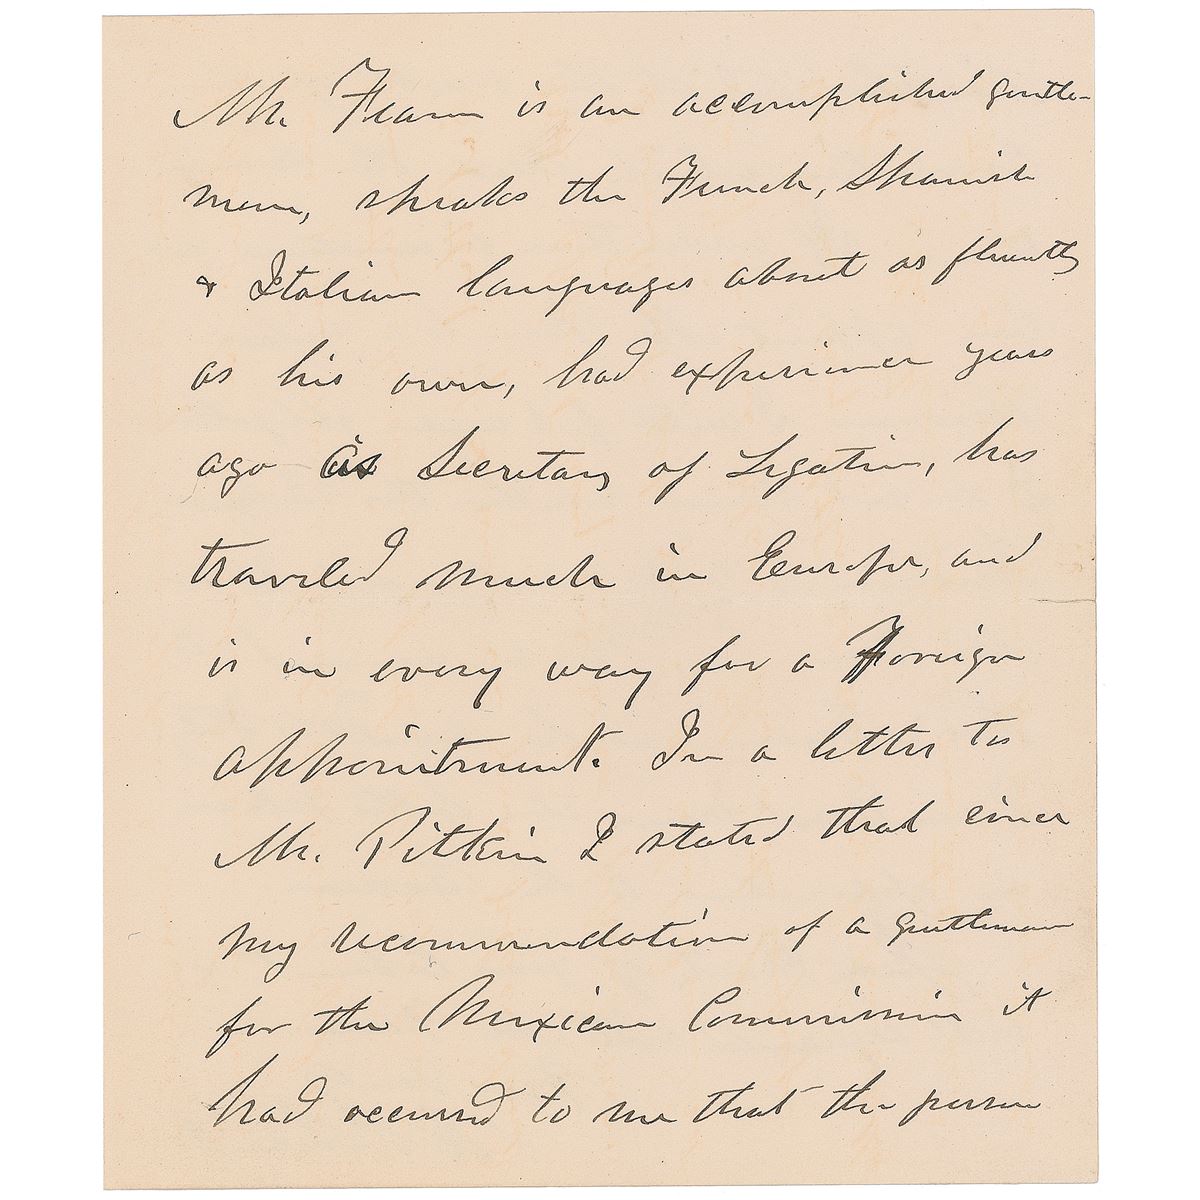 Mr. Fearn is an accomplished gentle-
man, speaks the French, Spanish
& Italian languages about as fluently
as his own, had experience years
ago as Secretary of Legation, has
traveled much in Europe, and
is in every way for a Foreign
appointment. In a letter to
Mr. Pitkin I stated that since
my recommendation of a gentleman
for the Mexican Commission it
had occurred to me that the person